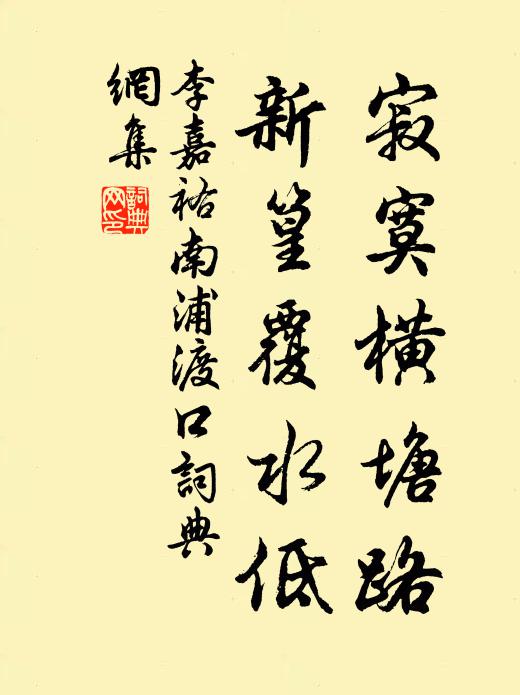 寂寞橫塘路
新篁覆水低
李嘉祐南浦渡口詞典
網集
詞典
網印